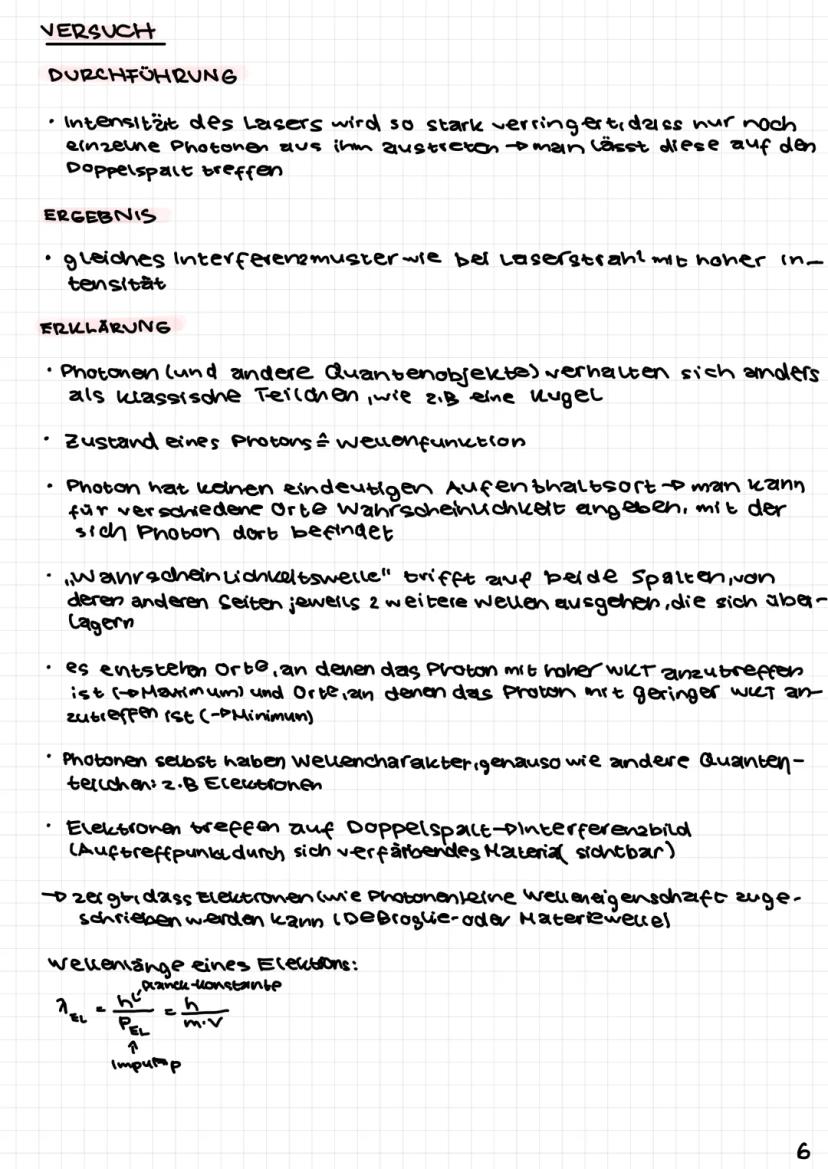 VERSUCH
DURCHFÜHRUNG
• Intensität des Lasers wird so stark verringert, dass nur noch
einzelne Photonen aus ihm austreten → man lässt diese auf den
Doppelspalt treffen
ERGEBNIS
• gleiches Interferenzmuster wie bei Laserstrahl mit hoher In-
tensität
ERKLÄRUNG
• Photonen (und andere Quantenobjekte) verhalten sich anders
als klassische Teilchen, wie z.B eine Kugel
• Zustand eines Photons ≙ Wellenfunktion
• Photon hat keinen eindeutigen Aufenthaltsort → man kann
für verschiedene Orte Wahrscheinlichkeit angeben, mit der
sich Photon dort befindet
• „Wahrscheinlichkeitswelle" trifft auf beide Spalten, von
deren anderen Seiten jeweils 2 weitere Wellen ausgehen, die sich über-
lagern
• es entstehen Orte, an denen das Photon mit hoher WKT anzutreffen
ist (→ Maximum) und Orte, an denen das Photon mit geringer WKT an-
zutreffen ist (→ Minimum)
• Photonen selbst haben Wellencharakter, genauso wie andere Quanten-
teilchen: z.B Elektronen
• Elektronen treffen auf Doppelspalt → Interferenzbild
(Auftreffpunkt durch sich verfärbendes Material sichtbar)
→ zeigt, dass Elektronen (wie Photonen) eine Welleneigenschaft zuge-
schrieben werden kann (DeBroglie- oder Materiewelle)
Wellenlänge eines Elektrons:
Planck-Konstante
λEL = h/PEL = h/m·v
↑
Impuls p
6